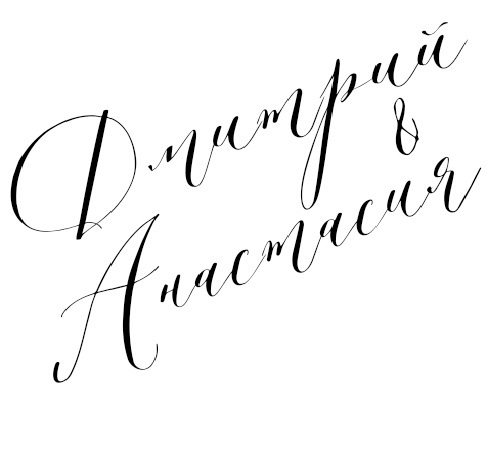 Дмитрий
&
Анастасия